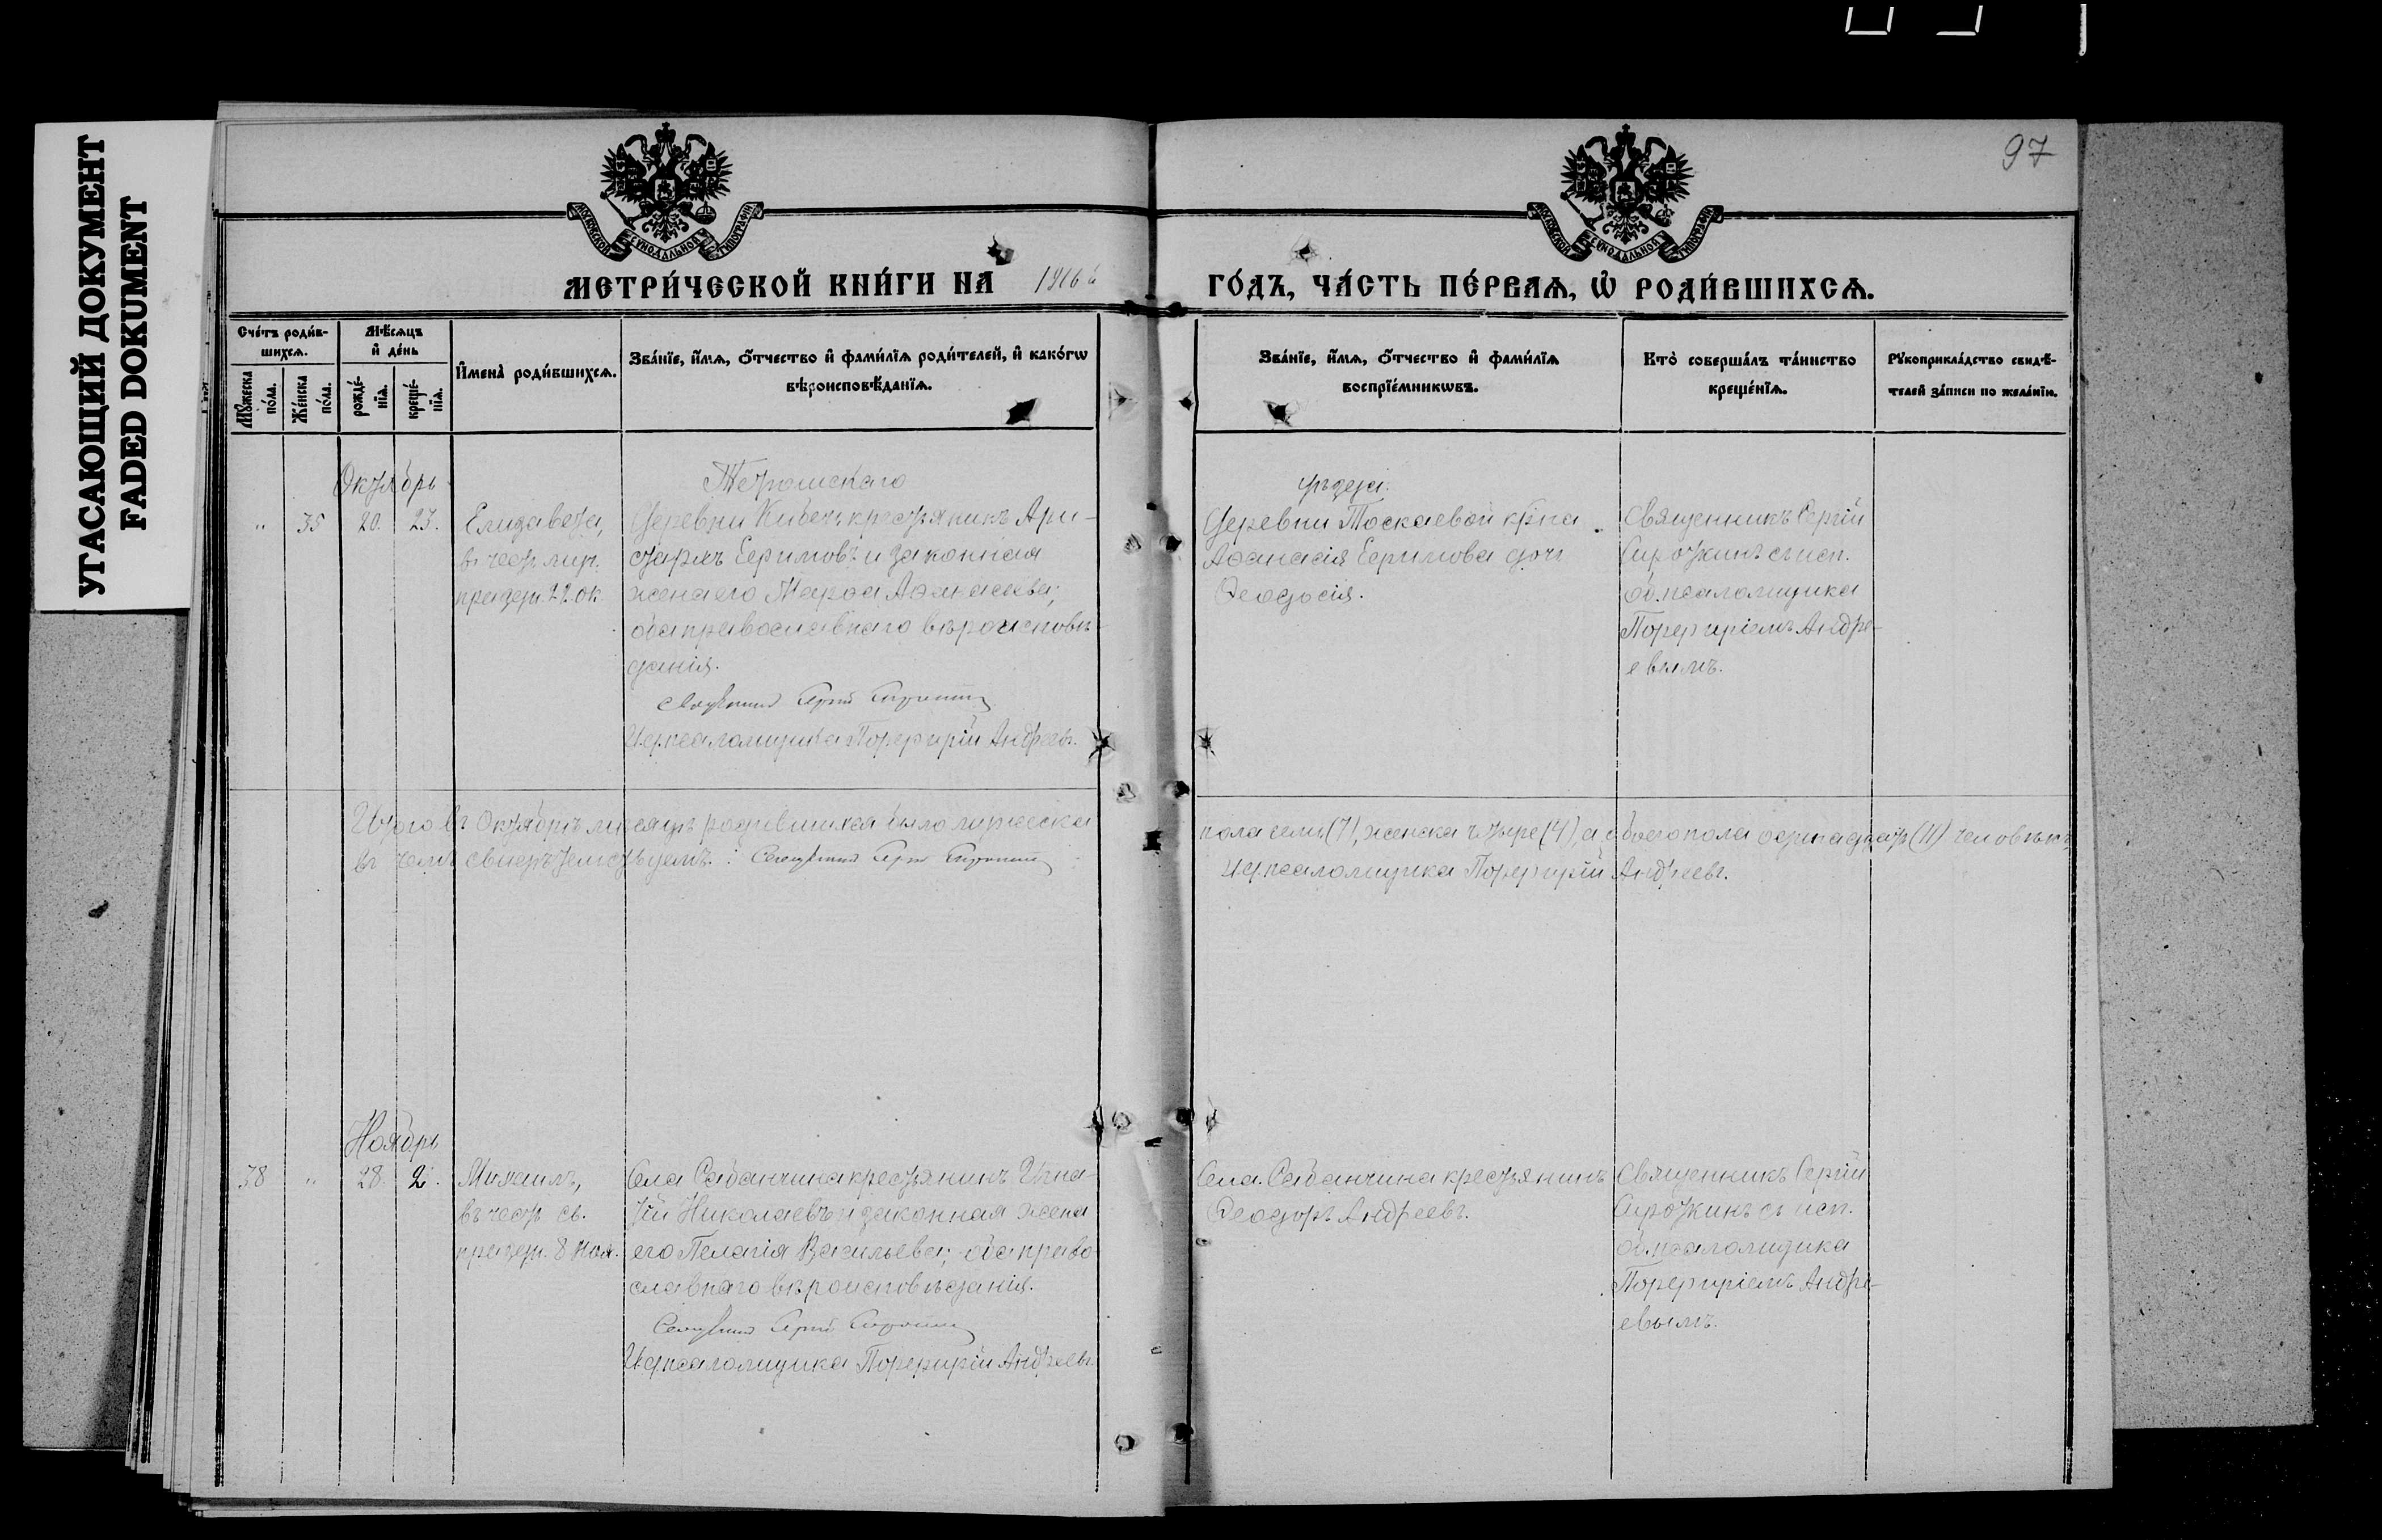 УГАСАЮЩИЙ ДОКУМЕНТ
FADED DOKUMENT
97
МОСКОВСКОЙ СУНОДАЛЬНОЙ ТИПОГРАФИИ
МОСКОВСКОЙ СУНОДАЛЬНОЙ ТИПОГРАФИИ
МЕТРИ́ЧЕСКОЙ КНИ́ГИ НА 1916 й ГО́ДЪ, ЧА́СТЬ ПЕ́РВАѦ, Ѡ҆ РОДИ́ВШИХСѦ.
Сче́тъ роди́в-
шихсѧ.
Мꙋ́жеска
по́ла.
Же́нска
по́ла.
Мѣ́сѧцъ
и҆ де́нь
рожде́-
нїѧ.
креще́-
нїѧ.
И҆мена̀ роди́вшихсѧ.
Зва́нїе, и҆́мѧ, ѻ҆́тчество и҆ фами́лїѧ роди́телей, и҆ како́гѡ
вѣроисповѣ́данїѧ.
Зва́нїе, и҆́мѧ, ѻ҆́тчество и҆ фами́лїѧ
воспрїе́мникѡвъ.
Кто̀ соверша́лъ та́инство
креще́нїѧ.
Рꙋкоприкла́дство свидѣ́-
телей за́писи по жела́нїю.
Октябрь
Тетюшскаго
уѣзда:
" 35 20. 23.
Елизавета,
въ честь муч.
праздн. 22 ок.
Деревни Кибечь крестьянинъ Ари-
стархъ Ефимовъ и законная
жена его Марѳа Аѳанасьева;
оба православнаго вѣроисповѣ-
данія.
Священникъ Сергій Сироткинъ
И. д. псаломщика Порфирій Андреевъ.
Деревни Тоскаевой кр-на
Аѳанасія Ефимова дочь
Ѳеодосія.
Священникъ Сергій
Сироткинъ съ исп.
об. псаломщика
Порфиріемъ Андре-
евымъ.
Итого въ Октябрѣ мѣсяцѣ родившихся было мужеска пола семь (7), женска четыре (4), а обоего пола одиннадцать (11) человѣкъ,
въ чемъ свидѣтельствуемъ: Священникъ Сергій Сироткинъ
И. д. псаломщика Порфирій Андреевъ.
Ноябрь
38 " 28. 2.
Михаилъ,
въ честь св.
праздн. 8 Ноя.
Села Сабанчина крестьянинъ Игна-
тій Николаевъ и законная жена
его Пелагія Васильева; оба право-
славнаго вѣроисповѣданія.
Священникъ Сергій Сироткинъ
И. д. псаломщика Порфирій Андреевъ.
Села Сабанчина крестьянинъ
Ѳеодоръ Андреевъ.
Священникъ Сергій
Сироткинъ съ исп.
об. псаломщика
Порфиріемъ Андре-
евымъ.